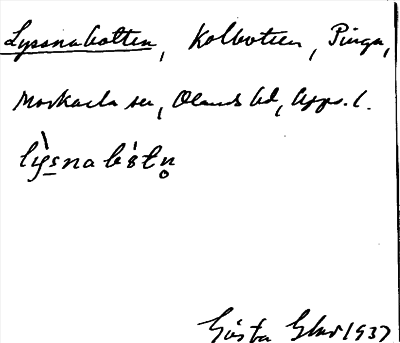 Lyssnabotten, Kolbotten, Pinga,
Morkarla sn, Olands hd, Upps. l.
lỳsnabòtn̥
Gösta 1937